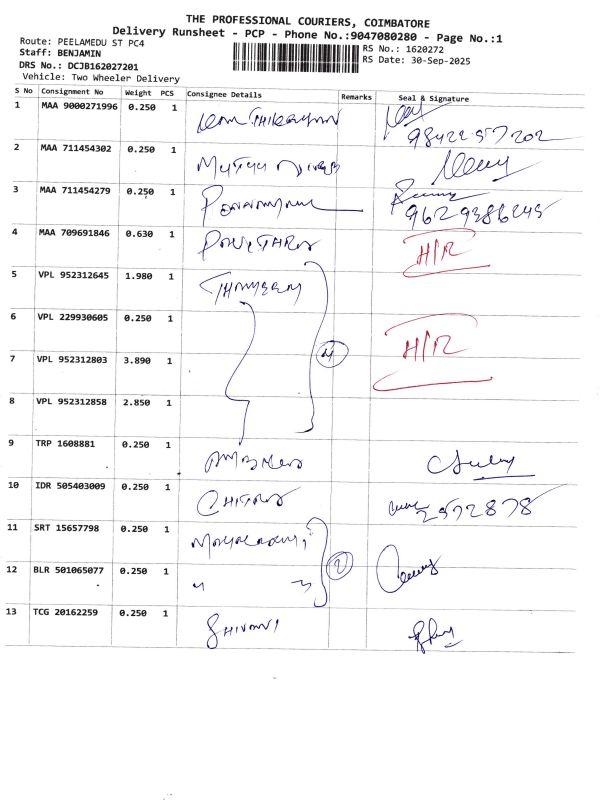 THE PROFESSIONAL COURIERS, COIMBATORE
Delivery Runsheet - PCP - Phone No.:9047080280 - Page No.:1
Route: PEELAMEDU ST PC4
RS No.: 1620272
Staff: BENJAMIN
RS Date: 30-Sep-2025
DRS No.: DCJB162027201
Vehicle: Two Wheeler Delivery
S No Consignment No Weight PCS Consignee Details Remarks Seal & Signature
1 MAA 9000271996 0.250 1
98422 57202
2 MAA 711454302 0.250 1
3 MAA 711454279 0.250 1
9629386245
4 MAA 709691846 0.630 1 H/R
5 VPL 952312645 1.980 1
6 VPL 229930605 0.250 1
7 VPL 952312803 3.890 1 4 H/R
8 VPL 952312858 2.850 1
9 TRP 1608881 0.250 1
10 IDR 505403009 0.250 1 CHITRA 2572878
11 SRT 15657798 0.250 1
12 BLR 501065077 0.250 1 " 2
13 TCG 20162259 0.250 1 SHIVANI